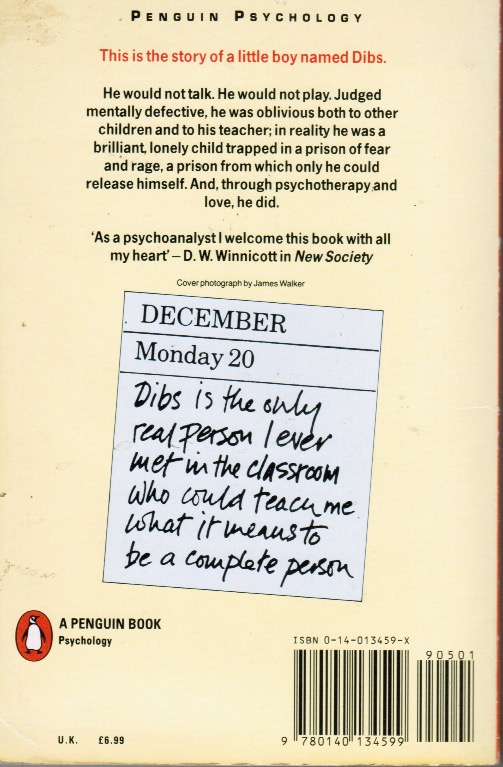 PENGUIN PSYCHOLOGY
This is the story of a little boy named Dibs.
He would not talk. He would not play. Judged
mentally defective, he was oblivious both to other
children and to his teacher; in reality he was a
brilliant, lonely child trapped in a prison of fear
and rage, a prison from which only he could
release himself. And, through psychotherapy and
love, he did.
'As a psychoanalyst I welcome this book with all
my heart' – D. W. Winnicott in New Society
Cover photograph by James Walker
DECEMBER
Monday 20
Dibs is the only
real person I ever
met in the classroom
who could teach me
what it means to
be a complete person
A PENGUIN BOOK
Psychology
U.K. £6.99
ISBN 0-14-013459-X
90501
9 780140 134599